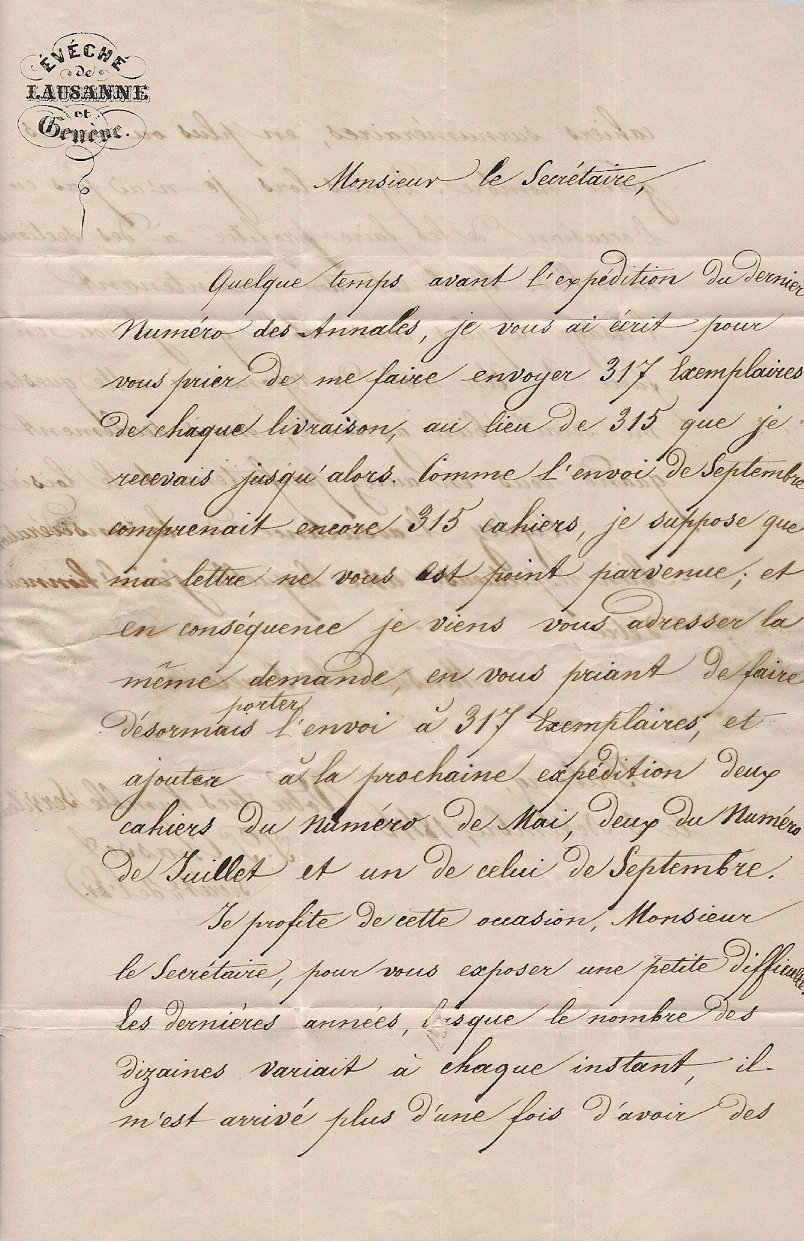 ÉVÉCHÉ
de
LAUSANNE
et
Genève.
Monsieur le Secrétaire,
Quelque temps avant l'expédition du dernier
Numéro des Annales, je vous ai écrit pour
vous prier de me faire envoyer 317 Exemplaires
de chaque livraison, au lieu de 315 que je
recevais jusqu'alors. Comme l'envoi de Septembre
comprenait encore 315 cahiers, je suppose que
ma lettre ne vous est point parvenue; et
en conséquence je viens vous adresser la
même demande, en vous priant de faire
porter
désormais l'envoi à 317 Exemplaires, et
ajouter à la prochaine expédition deux
cahiers du Numéro de Mai, deux du Numéro
de Juillet et un de celui de Septembre.
Je profite de cette occasion, Monsieur
le Secrétaire, pour vous exposer une petite difficulté.
Les dernières années, lorsque le nombre des
dizaines variait à chaque instant, il
m'est arrivé plus d'une fois d'avoir des